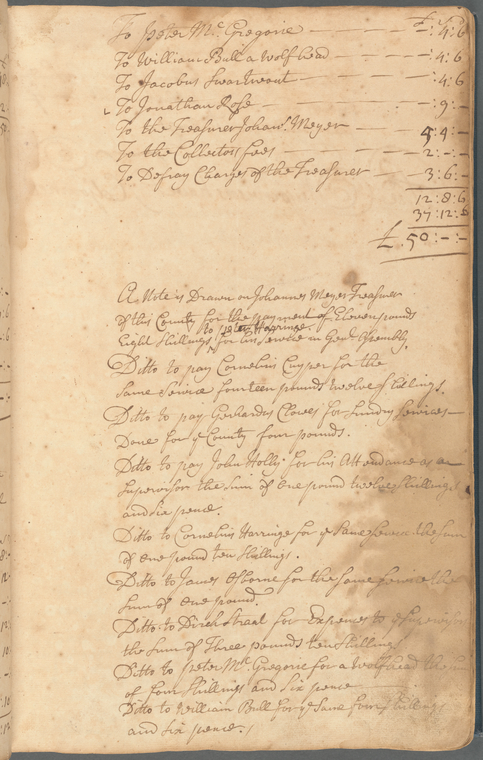 £ S
To Peter Mc. Gregorie — — — -:4:6
To William Bull a Wolf head — — -:4:6
To Jacobus Swartwout — — -:4:6
To Jonathan Rose — — — -:9:-
To the Treasurer Johans. Meyer — — 4:4:-
To the Collectors fees — — 2:-:-
To Defray Charges of the Treasurer — 3:6:-
12:8:6
37:12:6
£ 50:-:-
A Note is Drawn on Johannes Meyer Treasurer
of this County for the payment of Eleven pounds
to peter Harringe
Eight Shillings for his Service in Genl. Asembly.
Ditto to pay Cornelius Cuyper for the
Same Service fourteen pounds twelve shillings.
Ditto to pay Gerhardus Clowes for Sundry Services
Done for ye County four pounds.
Ditto to pay John Holly for his Attendance as a
Supervisor the Sum of One pound twelve Shillings
and six pence.
Ditto to Cornelius Harringe for ye Same Service the Sum
of One pound ten Shillings.
Ditto to James Osborne for the Same Service the
Sum of One pound.
Ditto to Dirck Straat for Expences to ye Supervisors
the Sum of Three pounds ten Shillings
Ditto to peter Mc. Gregorie for a Wolf head the Sum
of four Shillings and Six pence
Ditto to William Bull for ye Same four shillings
and six pence.